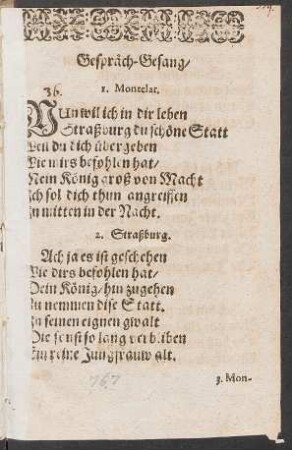 Gespräch-Gesang/
36.
1. Montclar.
NUn wil ich in dir leben
Straßburg du schöne Statt
Weil du dich übergeben
Wie mirs befohlen hat/
Mein König groß von Macht
Ich sol dich thun angreiffen
In mitten in der Nacht.
2. Straßburg.
Ach ja es ist geschehen
Wie dirs befohlen hat/
Dein König/ hin zugehen
Zu nemmen dise Statt.
In seinen eignen gwalt
Die sonst so lang verbliben
Ein reine Jungfrauw alt.
767
3. Mon-